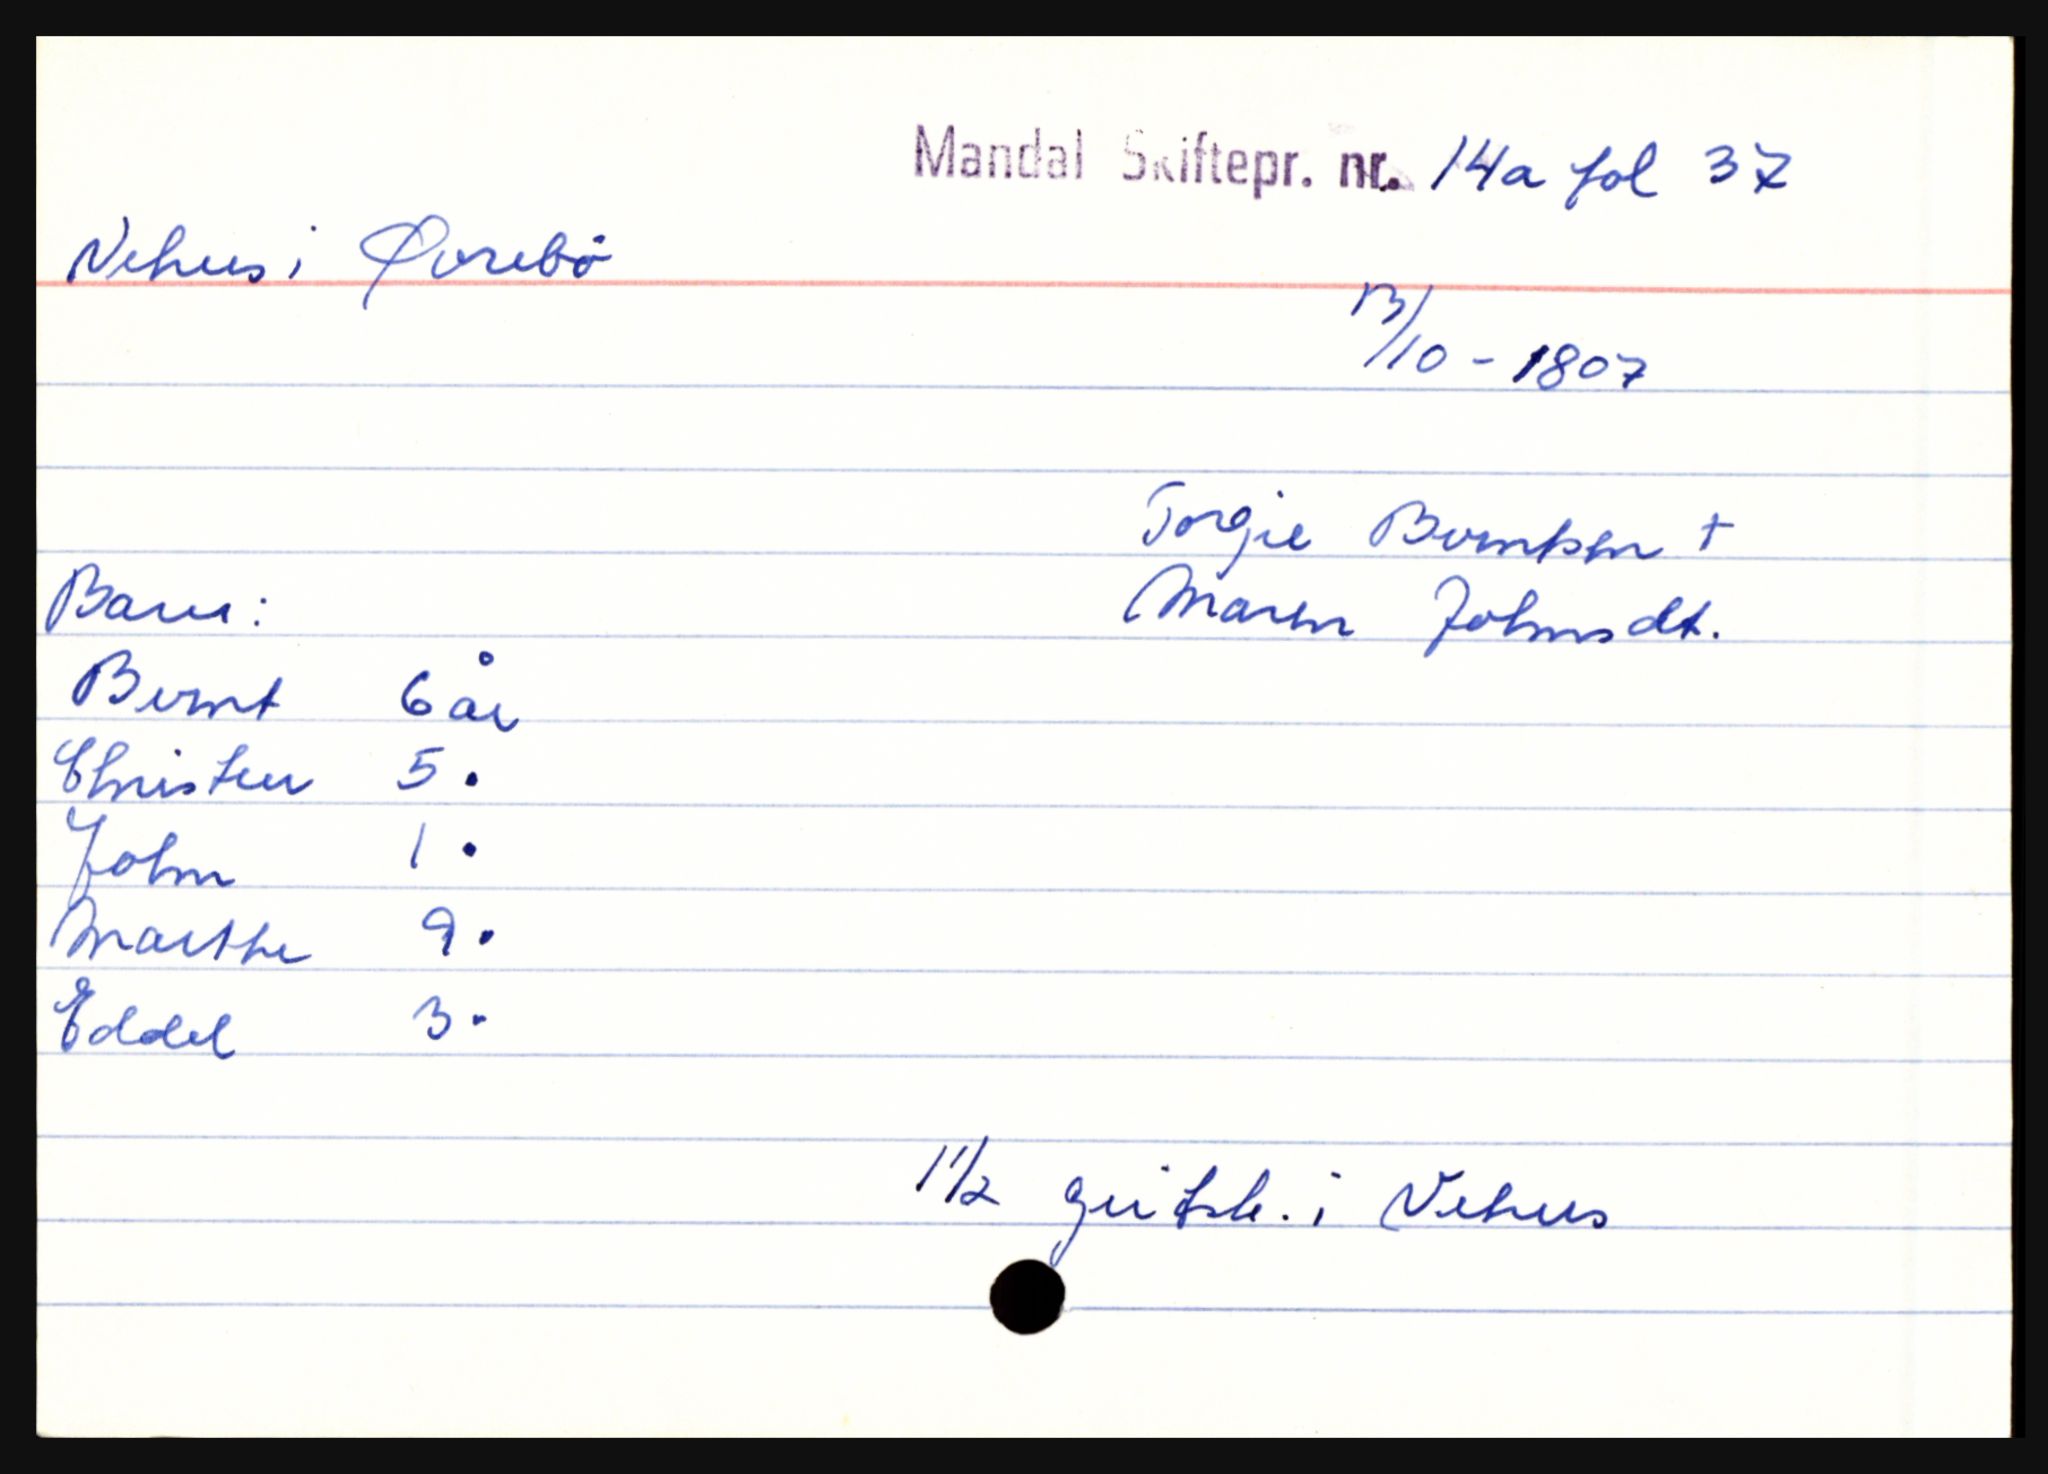 Mandal Skiftepr. nr. 14a fol 37
Vehus i Øvrebö
13/10 - 1807
Torgie Berntsen +
Maren Johnsdt.
Barn:
Bernt 6 år
Christen 5 .
John 1 .
Marthe 9 .
Eddel 3 .
1 1/2 gitsk. i Vehus